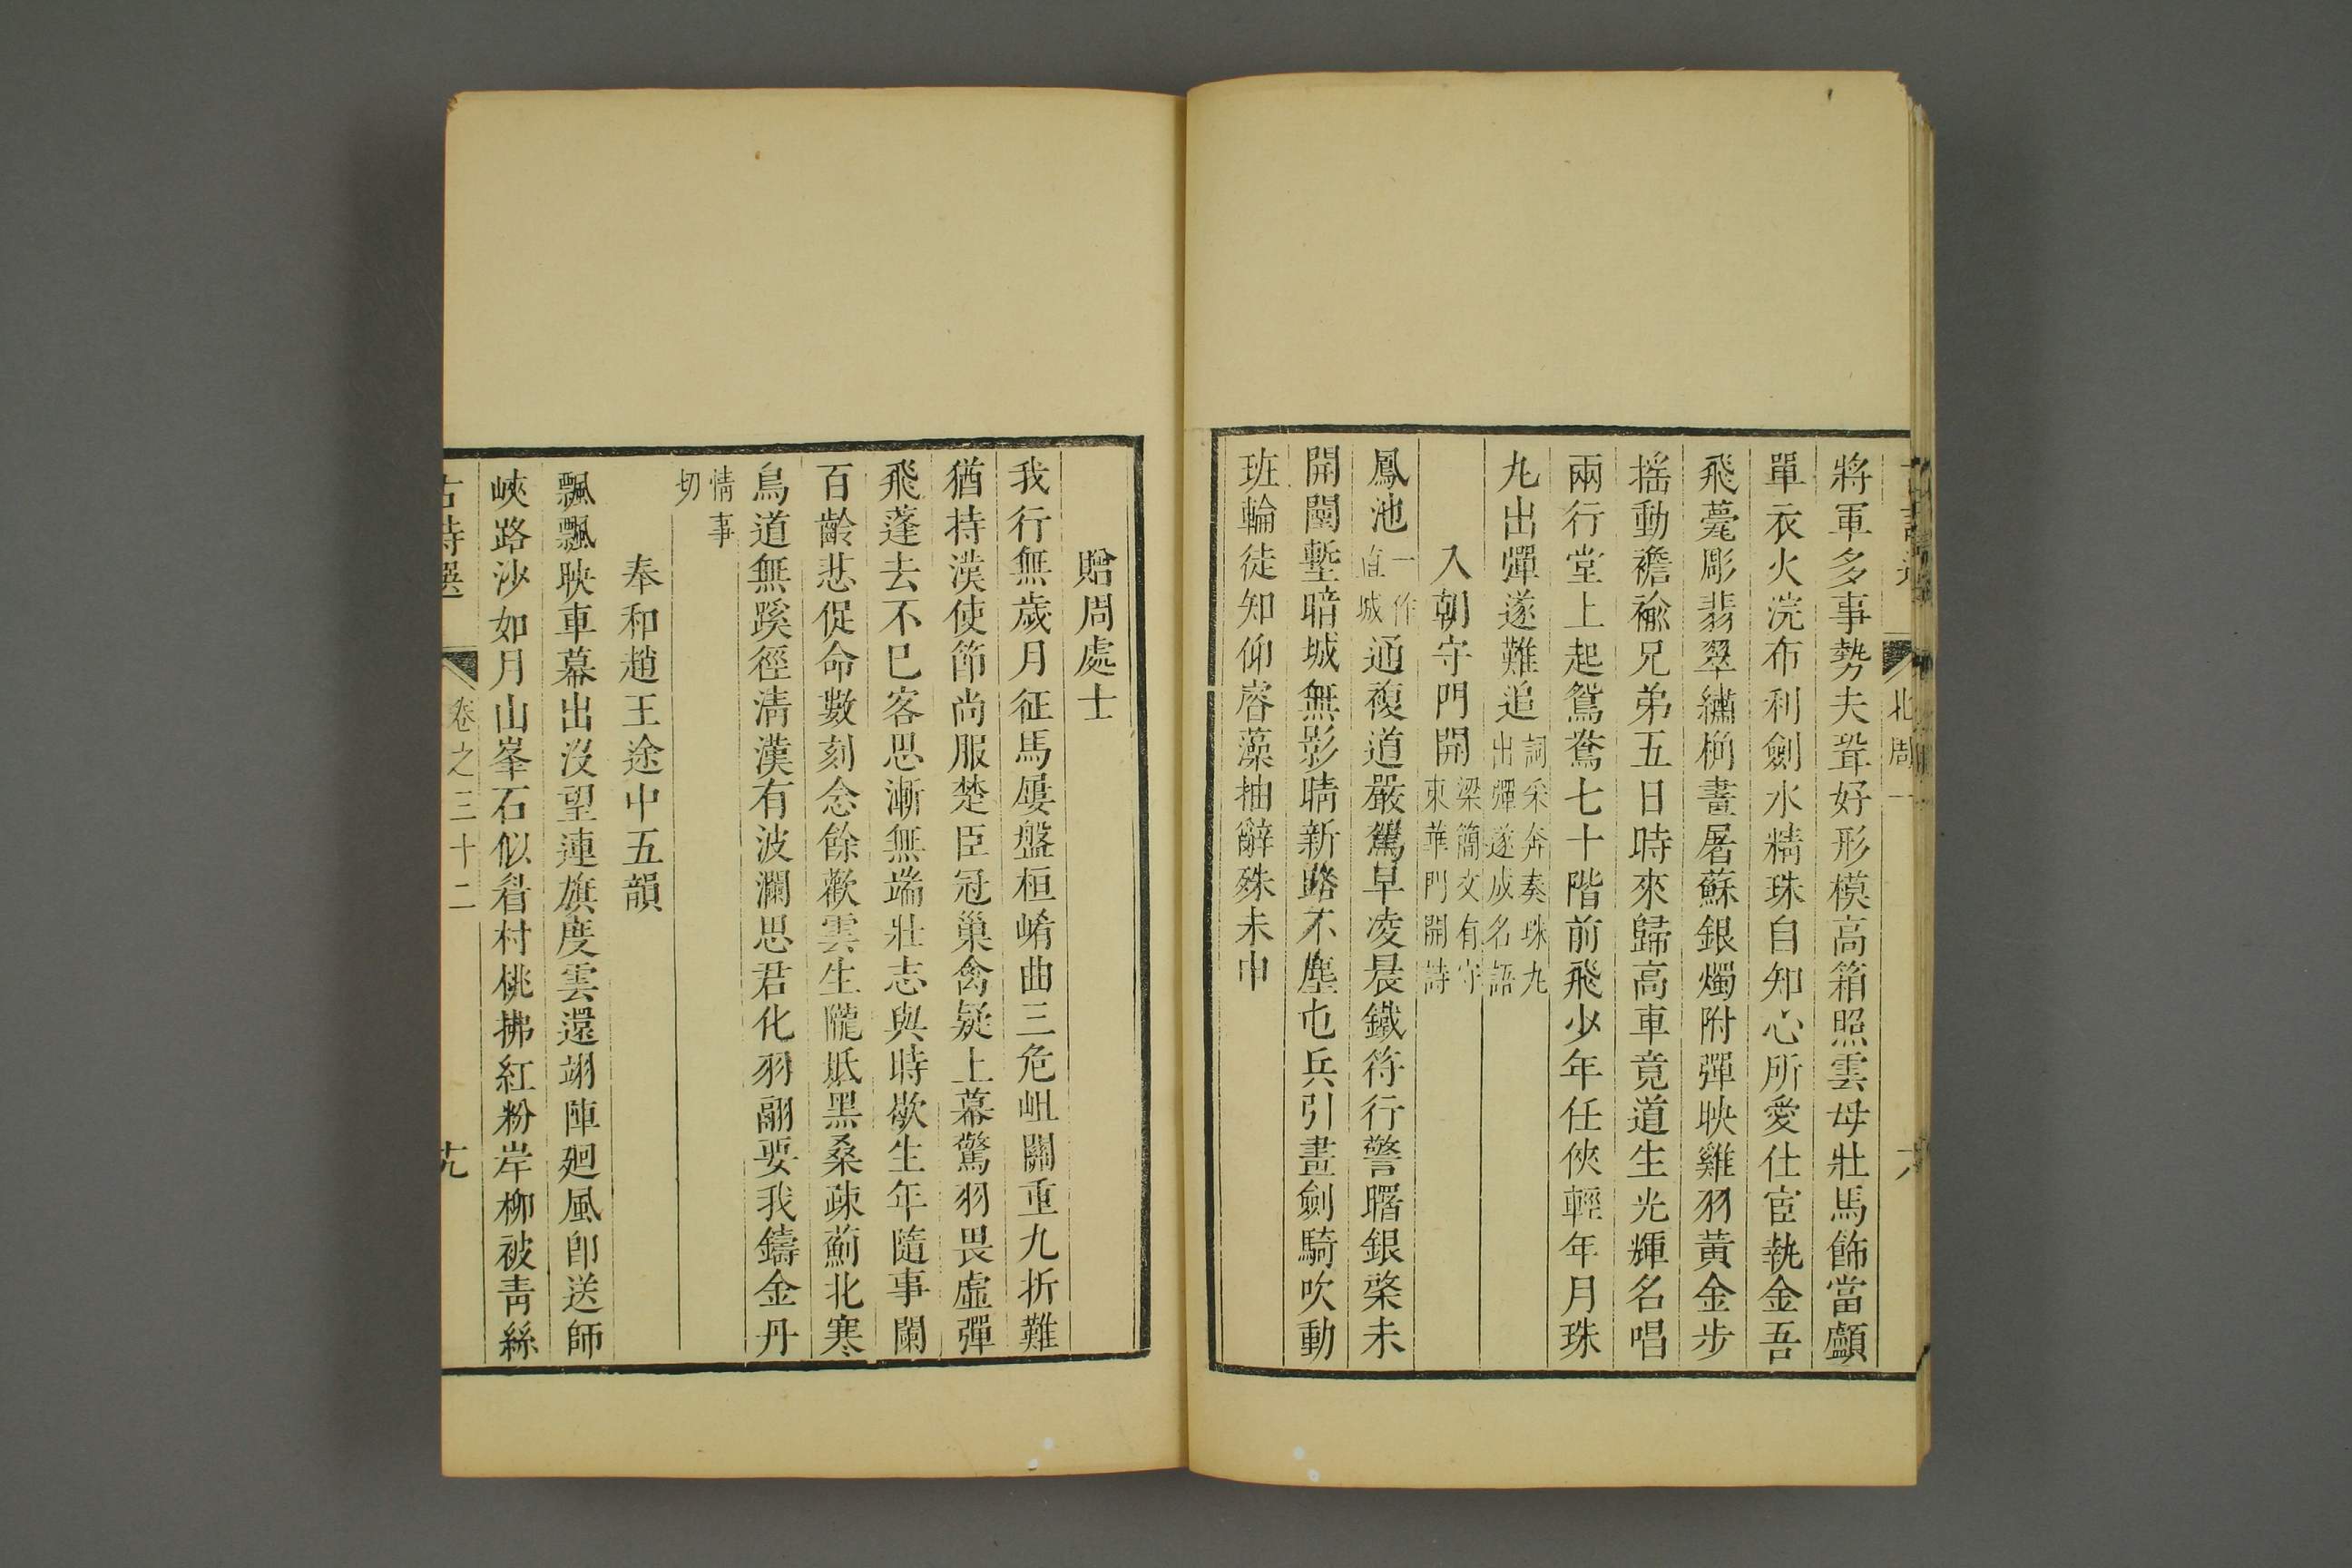 北周一
將軍多事勢夫聓好形模高箱照雲母壯馬飾當顱
單衣火浣布利劍水精珠自知心所愛仕宦執金吾
飛甍彫翡翠繡桷畫屠蘇銀燭附彈映雞羽黃金步
搖動襜褕兄弟五日時來歸高車竟道生光輝名唱
兩行堂上起鴛鴦七十階前飛少年任俠輕年月珠
丸出彈遂難追詞采奔奏珠丸出彈遂成名語
入朝守門開梁簡文有守東華門開詩
鳳池一作直城通複道嚴駕早凌晨鐵符行警曙銀棨未
開闉塹暗城無影晴新路不塵屯兵引畫劍騎吹動
班輪徒知仰睿藻抽辭殊未申
贈周處士
我行無歲月征馬屢盤桓崤曲三危岨關重九折難
猶持漢使節尚服楚臣冠巢禽疑上幕驚羽畏虛彈
飛蓬去不已客思漸無端壯志與時歇生年隨事闌
百齡悲促命數刻念餘歡雲生隴坻黑桑疎薊北寒
鳥道無蹊徑淸漢有波瀾思君化羽翮要我鑄金丹
情事切
奉和趙王途中五韻
飄飄映車幕出沒望連旗度雲還翊陣廻風卽送師
峽路沙如月山峯石似眉村桃拂紅粉岸柳被靑絲
古詩選 卷之三十二